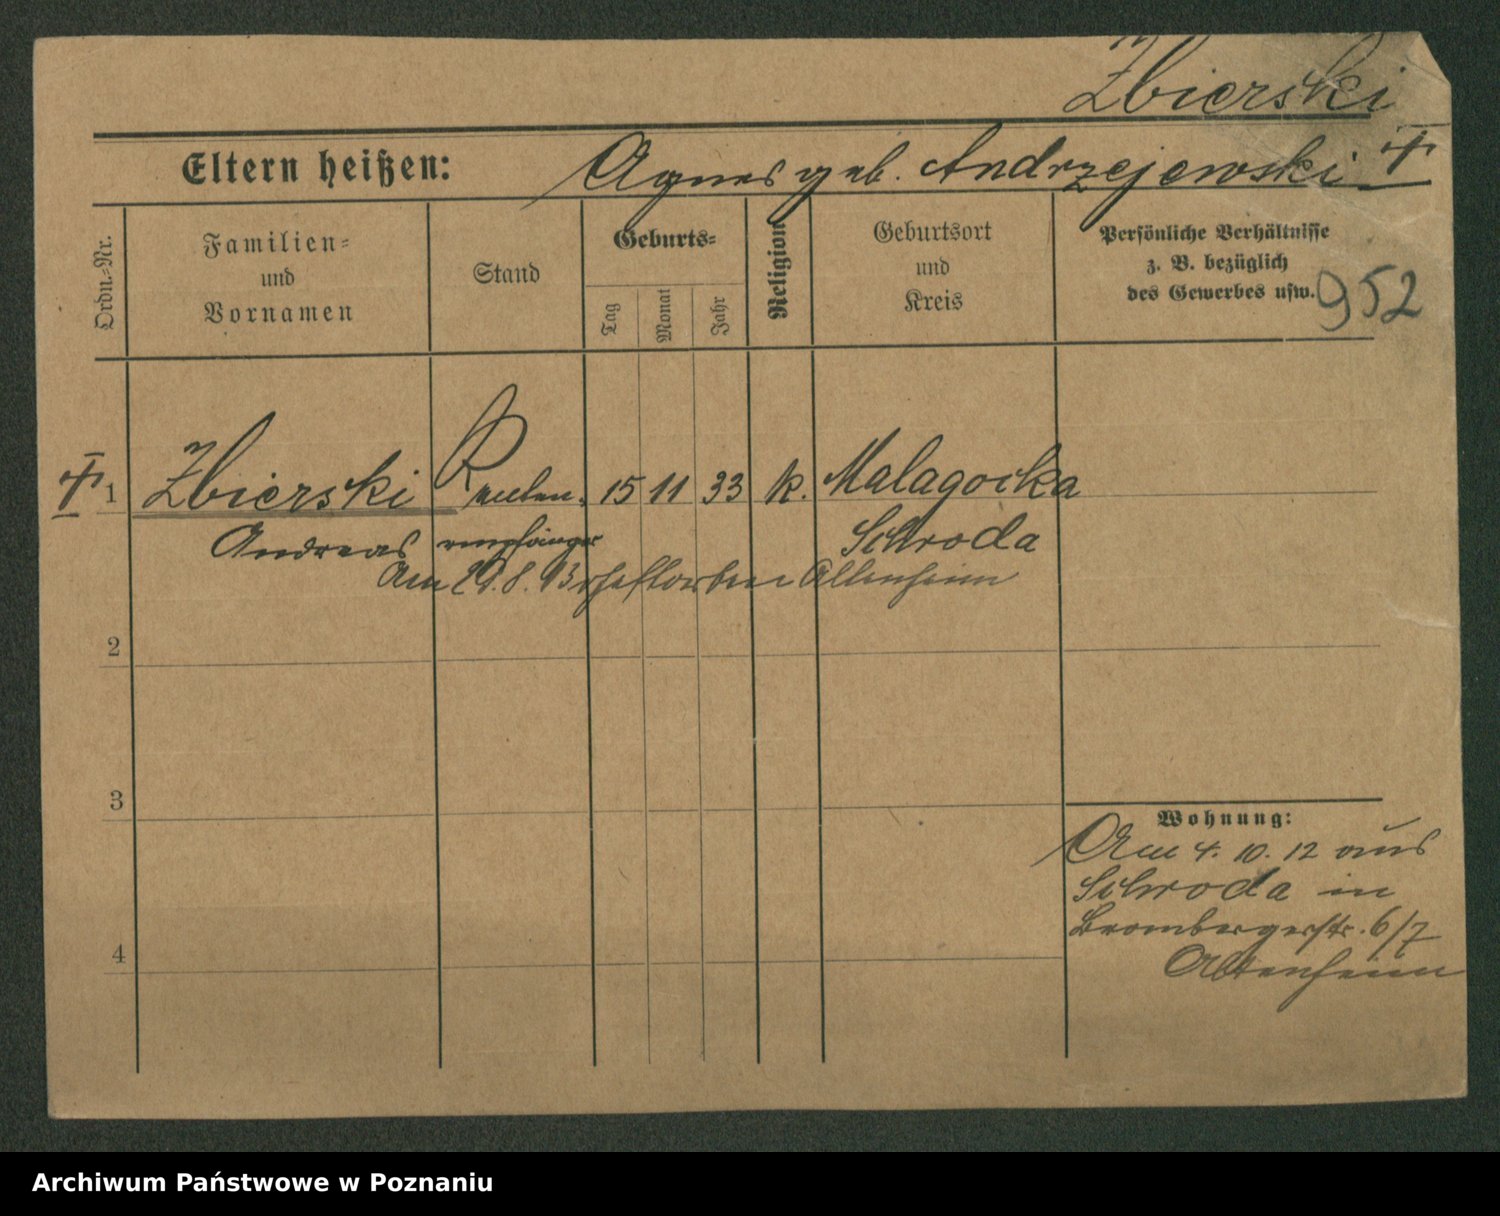 Zbierski
Eltern heißen: Agnes geb. Andrzejewski †
Ordn.-Nr.
Familien-
und
Vornamen
Stand
Geburts-
Tag
Monat
Jahr
Religion
Geburtsort
und
Kreis
Persönliche Verhältnisse
z. B. bezüglich
des Gewerbes usw.
952
† 1 Zbierski Renten- 15 11 33 k. Malagorka
Andreas empfänger Schroda
Am 29.8.13 Altenheim
2
3
4
Wohnung:
Am 4. 10. 12 aus
Schroda in
Brombergerstr. 6/7
Altenheim
Archiwum Państwowe w Poznaniu